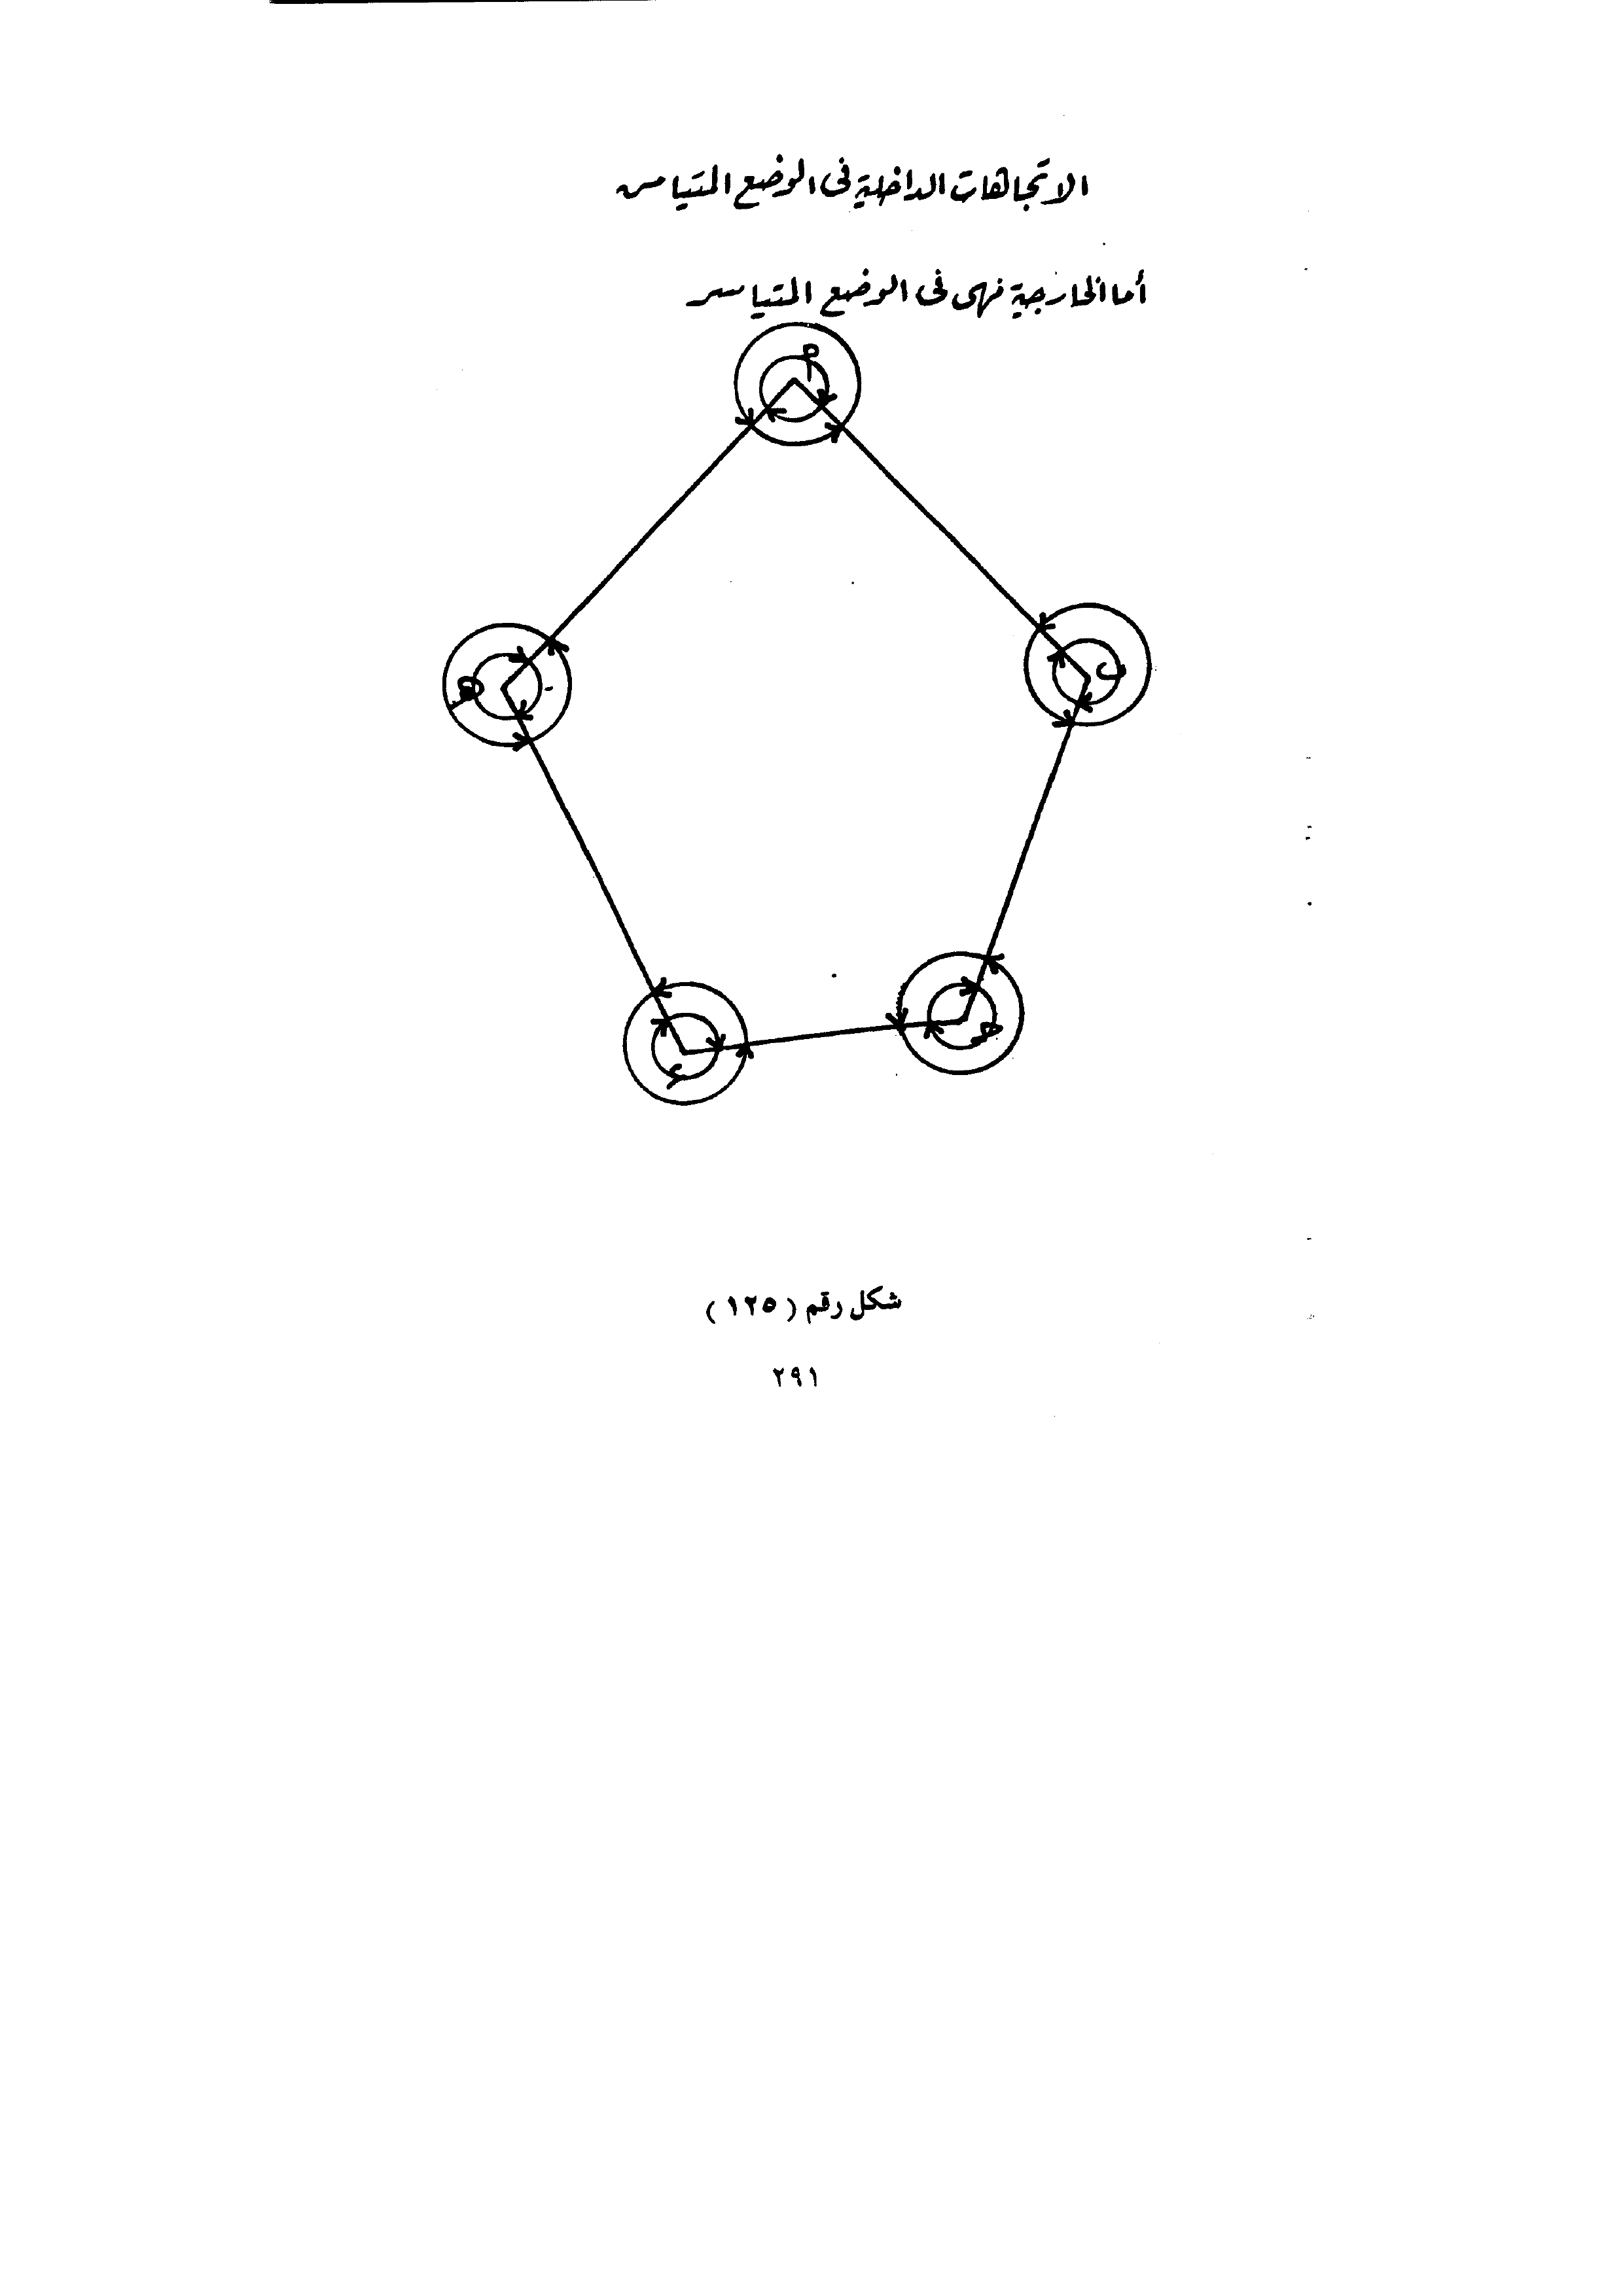 الاتجاهات الداخلية فى الوضع المتيامن
أما الخارجية فهى فى الوضع المتياسر
م
ب
هـ
حـ
ء
شكل رقم (١٢٥)
٢٩١